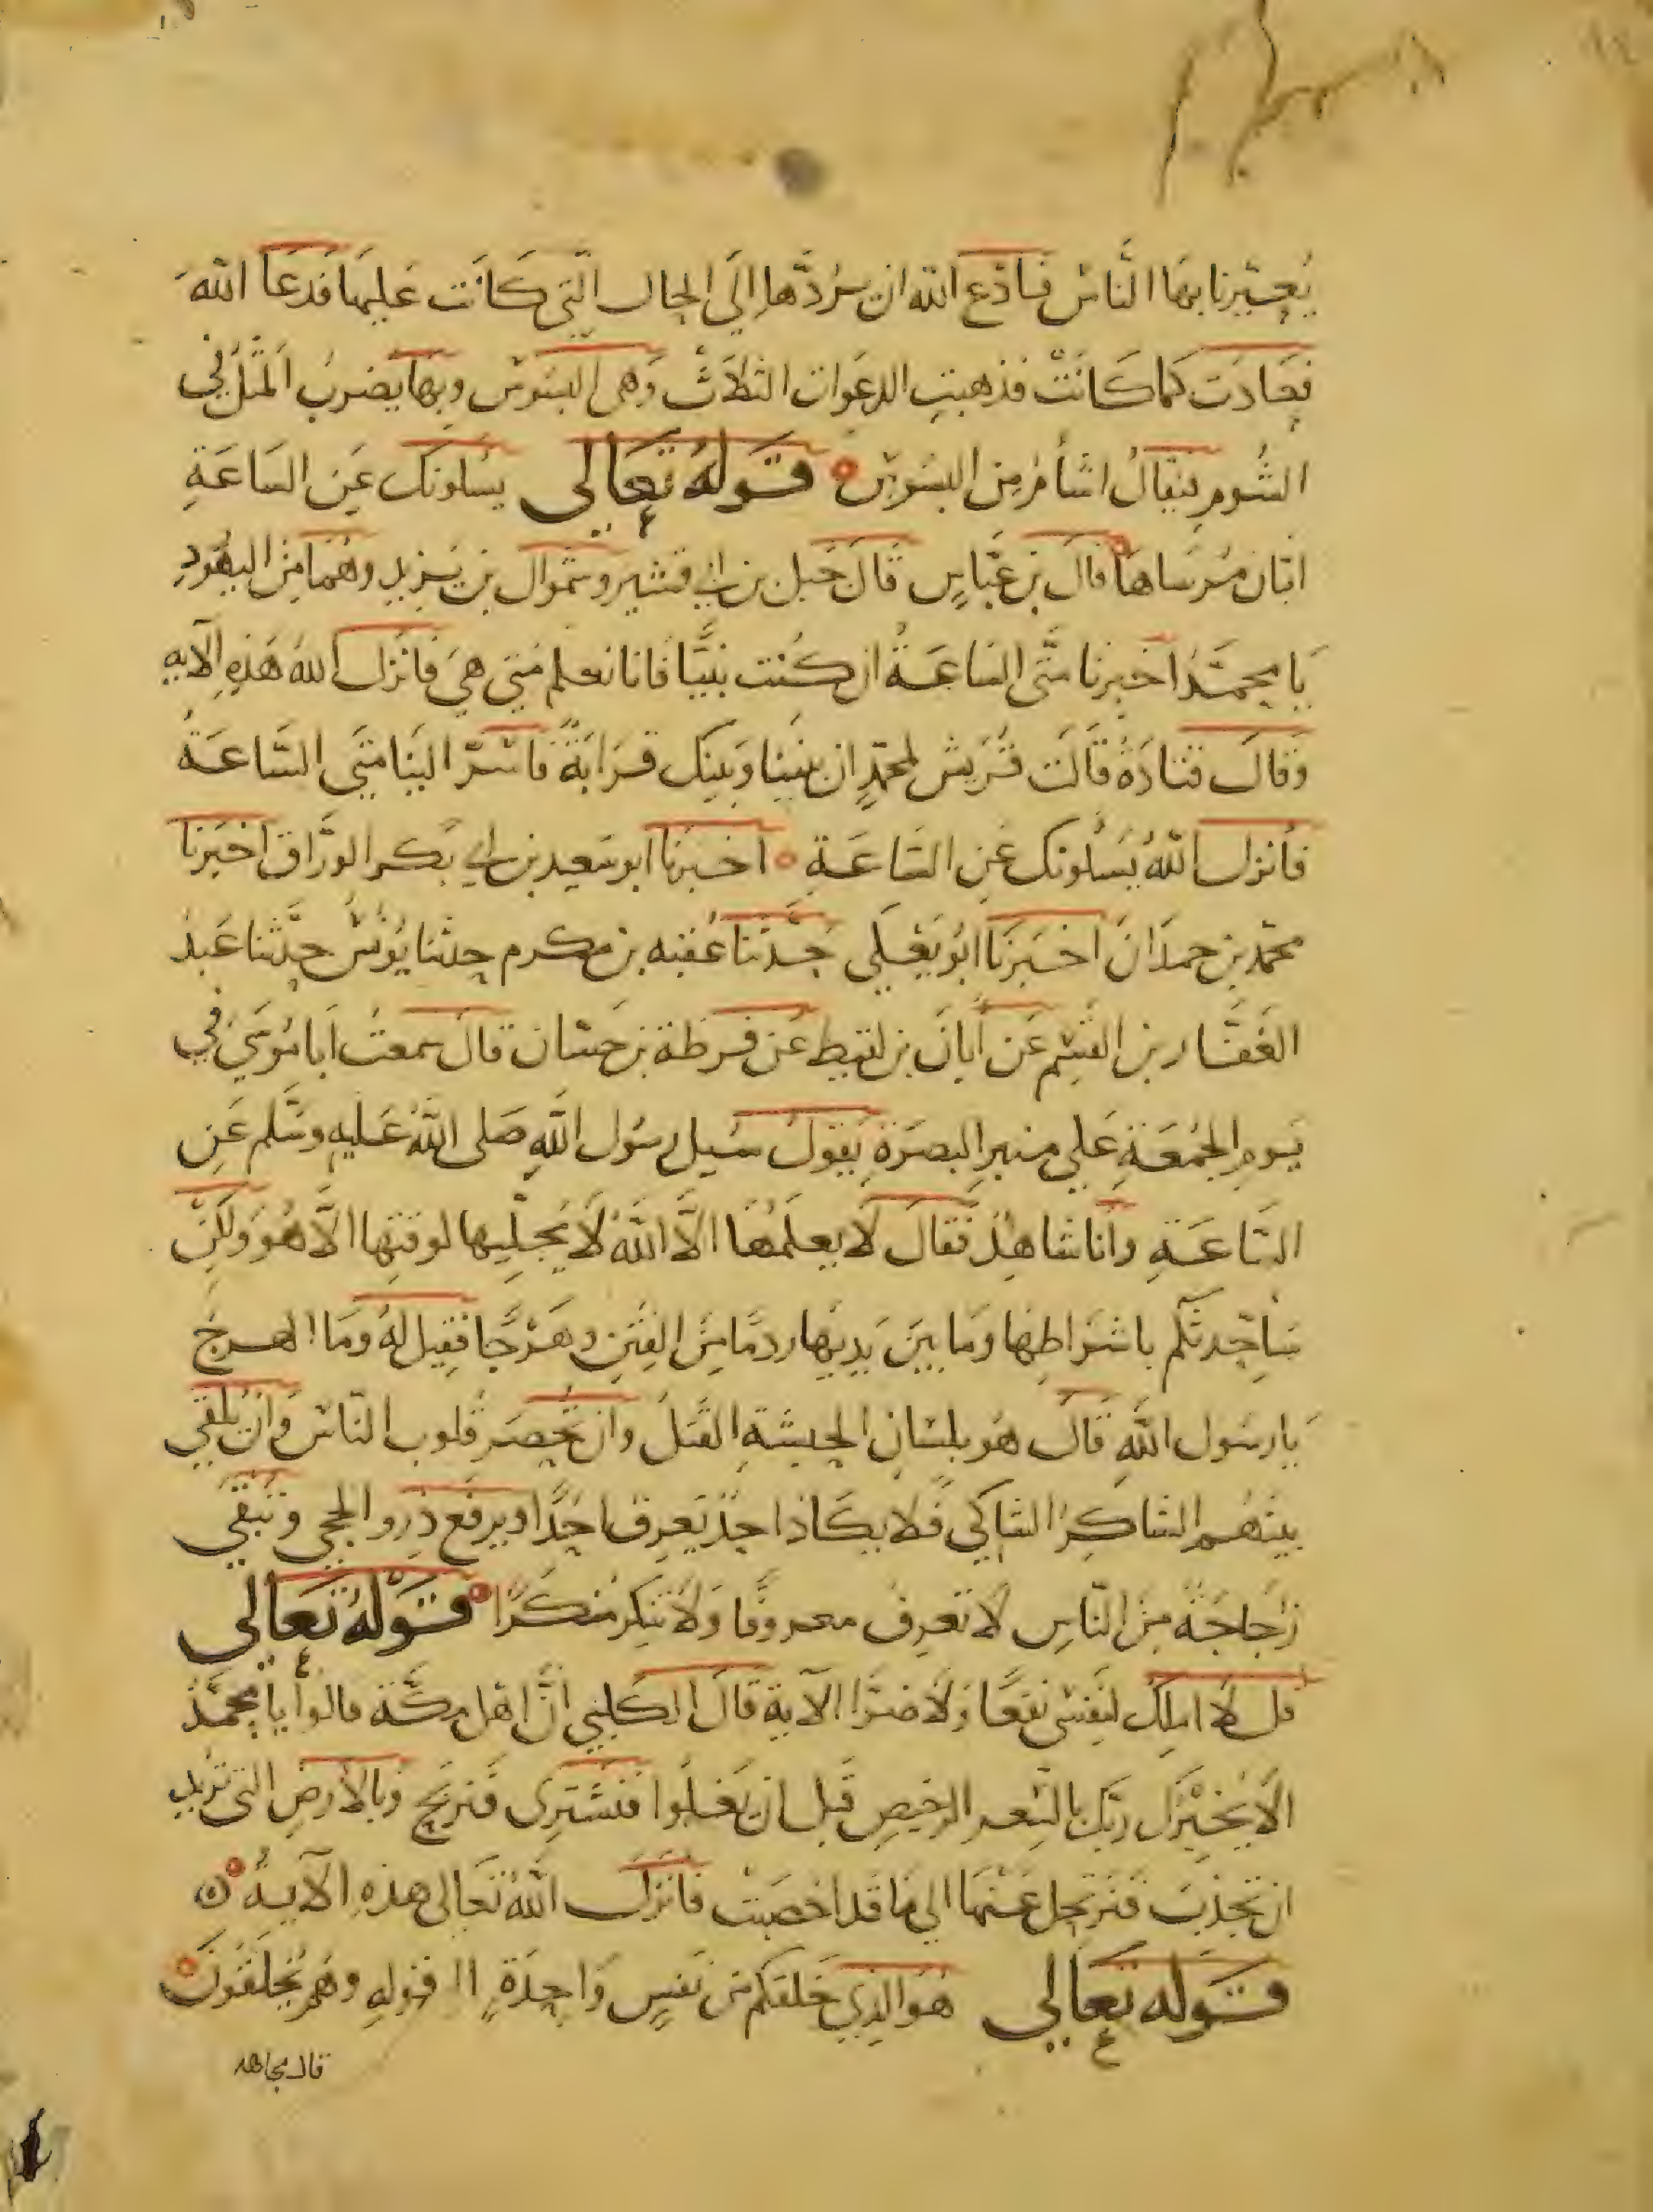 يُعيّرنا بها النّاس فادع الله ان يردّها إلي الحال الّتي كانت عليها فدعا الله
فعادت كما كانت فذهبتِ الدعوات الثلاث وهي البسوس وبها يضرب المثل في
الشُومِ فيقالُ اشأمُ مِن البسُوسِ قوله تعالي يسلونك عَن السَاعَةِ
ايّان مُرسَاها قال بن عبّاسٍ قال جَبل بن ابي قشير وشموال بن يزيد وهُما مِن اليهُودِ
يا محمّدُ اخبرنا متى السَاعَةُ ان كُنت نبيًّا فانا نعلم متي هي فانزل اللهُ هَذِهِ الآيه
وقال قتادَةُ قالَت قُريش لمحمّدٍ ان بيننا وَبينك قرَابَةً فاسرّ الينا متي السّاعَةُ
فأنزل اللهُ يَسْلونك عَنِ السَّاعَةِ اخبرنا ابو سَعيد بن ابي بَكر الورّاق اخبَرنا
محمّد بن حمدَان اخبَرنا ابُو يَعلي حَدّثنا عُقبه بن مكرم حدثنا يُونُس حدّثنا عَبدُ
الغَفّار بن القسم عَن ابانَ بن لقيط عَن قرظة بن حَسّان قال سمعتُ ابا مُوسَي في
يَومِ الجُمعَةِ عَلي منبرِ البصرَةِ يَقولُ سُيل رسُول اللهِ صَلى اللهُ عَليهِ وسَلّم عَنِ
السَّاعَةِ وانا شاهِدٌ فقال لا يعلَمُها الّا اللهُ لَا يُجلِّيها لوقتِها الَّا هُو ولكن
سَاحّدثكم باشرَاطِها ومَا بين يديها ردمًا مِن الفتنِ وهَرْجًا فقيل لهُ ومَا الهرجُ
يا رسُول اللهِ قال هُو بلسَانِ الحبشةِ القتلُ وان تحصَر قلوب النّاس وانْ تُلقي
بينهُم التناكرُ فلا يكاد احدٌ يَعرِف احدًا ويرفع ذوو الحجي وتبقي
رَجاجةٌ مِن النّاسِ لا تعرِف معروفًا ولا تنكِر مُنكرًا قوله تعالي
قل لا املِك لنفسِي نفعًا ولا ضرًّا الآية قال الكلبي انّ اهل مكّة قالوا يا محمّدُ
الا يخبرُك ربّك بالسّعرِ الرخيصِ قبل ان يَغلُوا فنشتري فنربح وبالأرضِ التي تريد
ان تجدبَ فنرتحل عَنها الي ما قد اخصبت فانزل اللهُ تَعالى هذهِ الآيةُ
قوله تعالي هُو الذي خلقكم من نفسٍ واحِدةٍ الا قوله وهُم يُخلَقُونَ
قال مجاهد